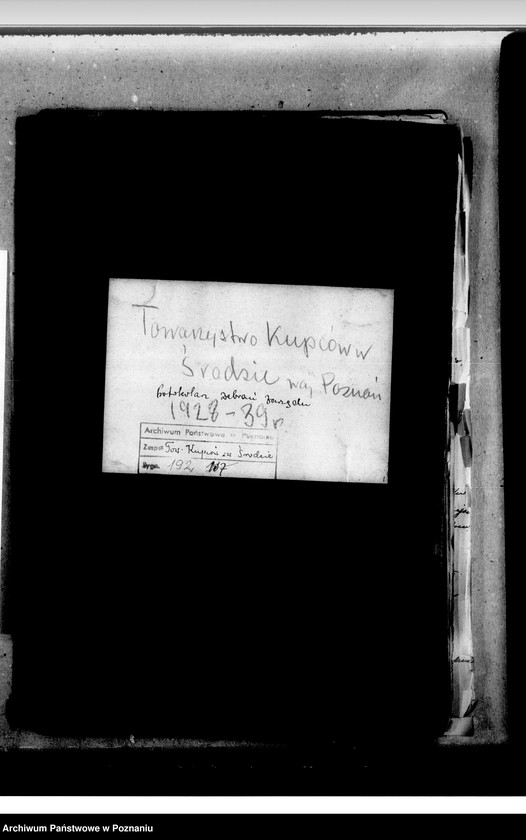 Towarzystwo Kupców w
Środzie woj Poznań
protokolarz zebrań zarządu
1928-39 r.
Archiwum Państwowe w Poznaniu
Zespół Tow. Kupców w Środzie
Sygn. 192 107
Archiwum Państwowe w Poznaniu